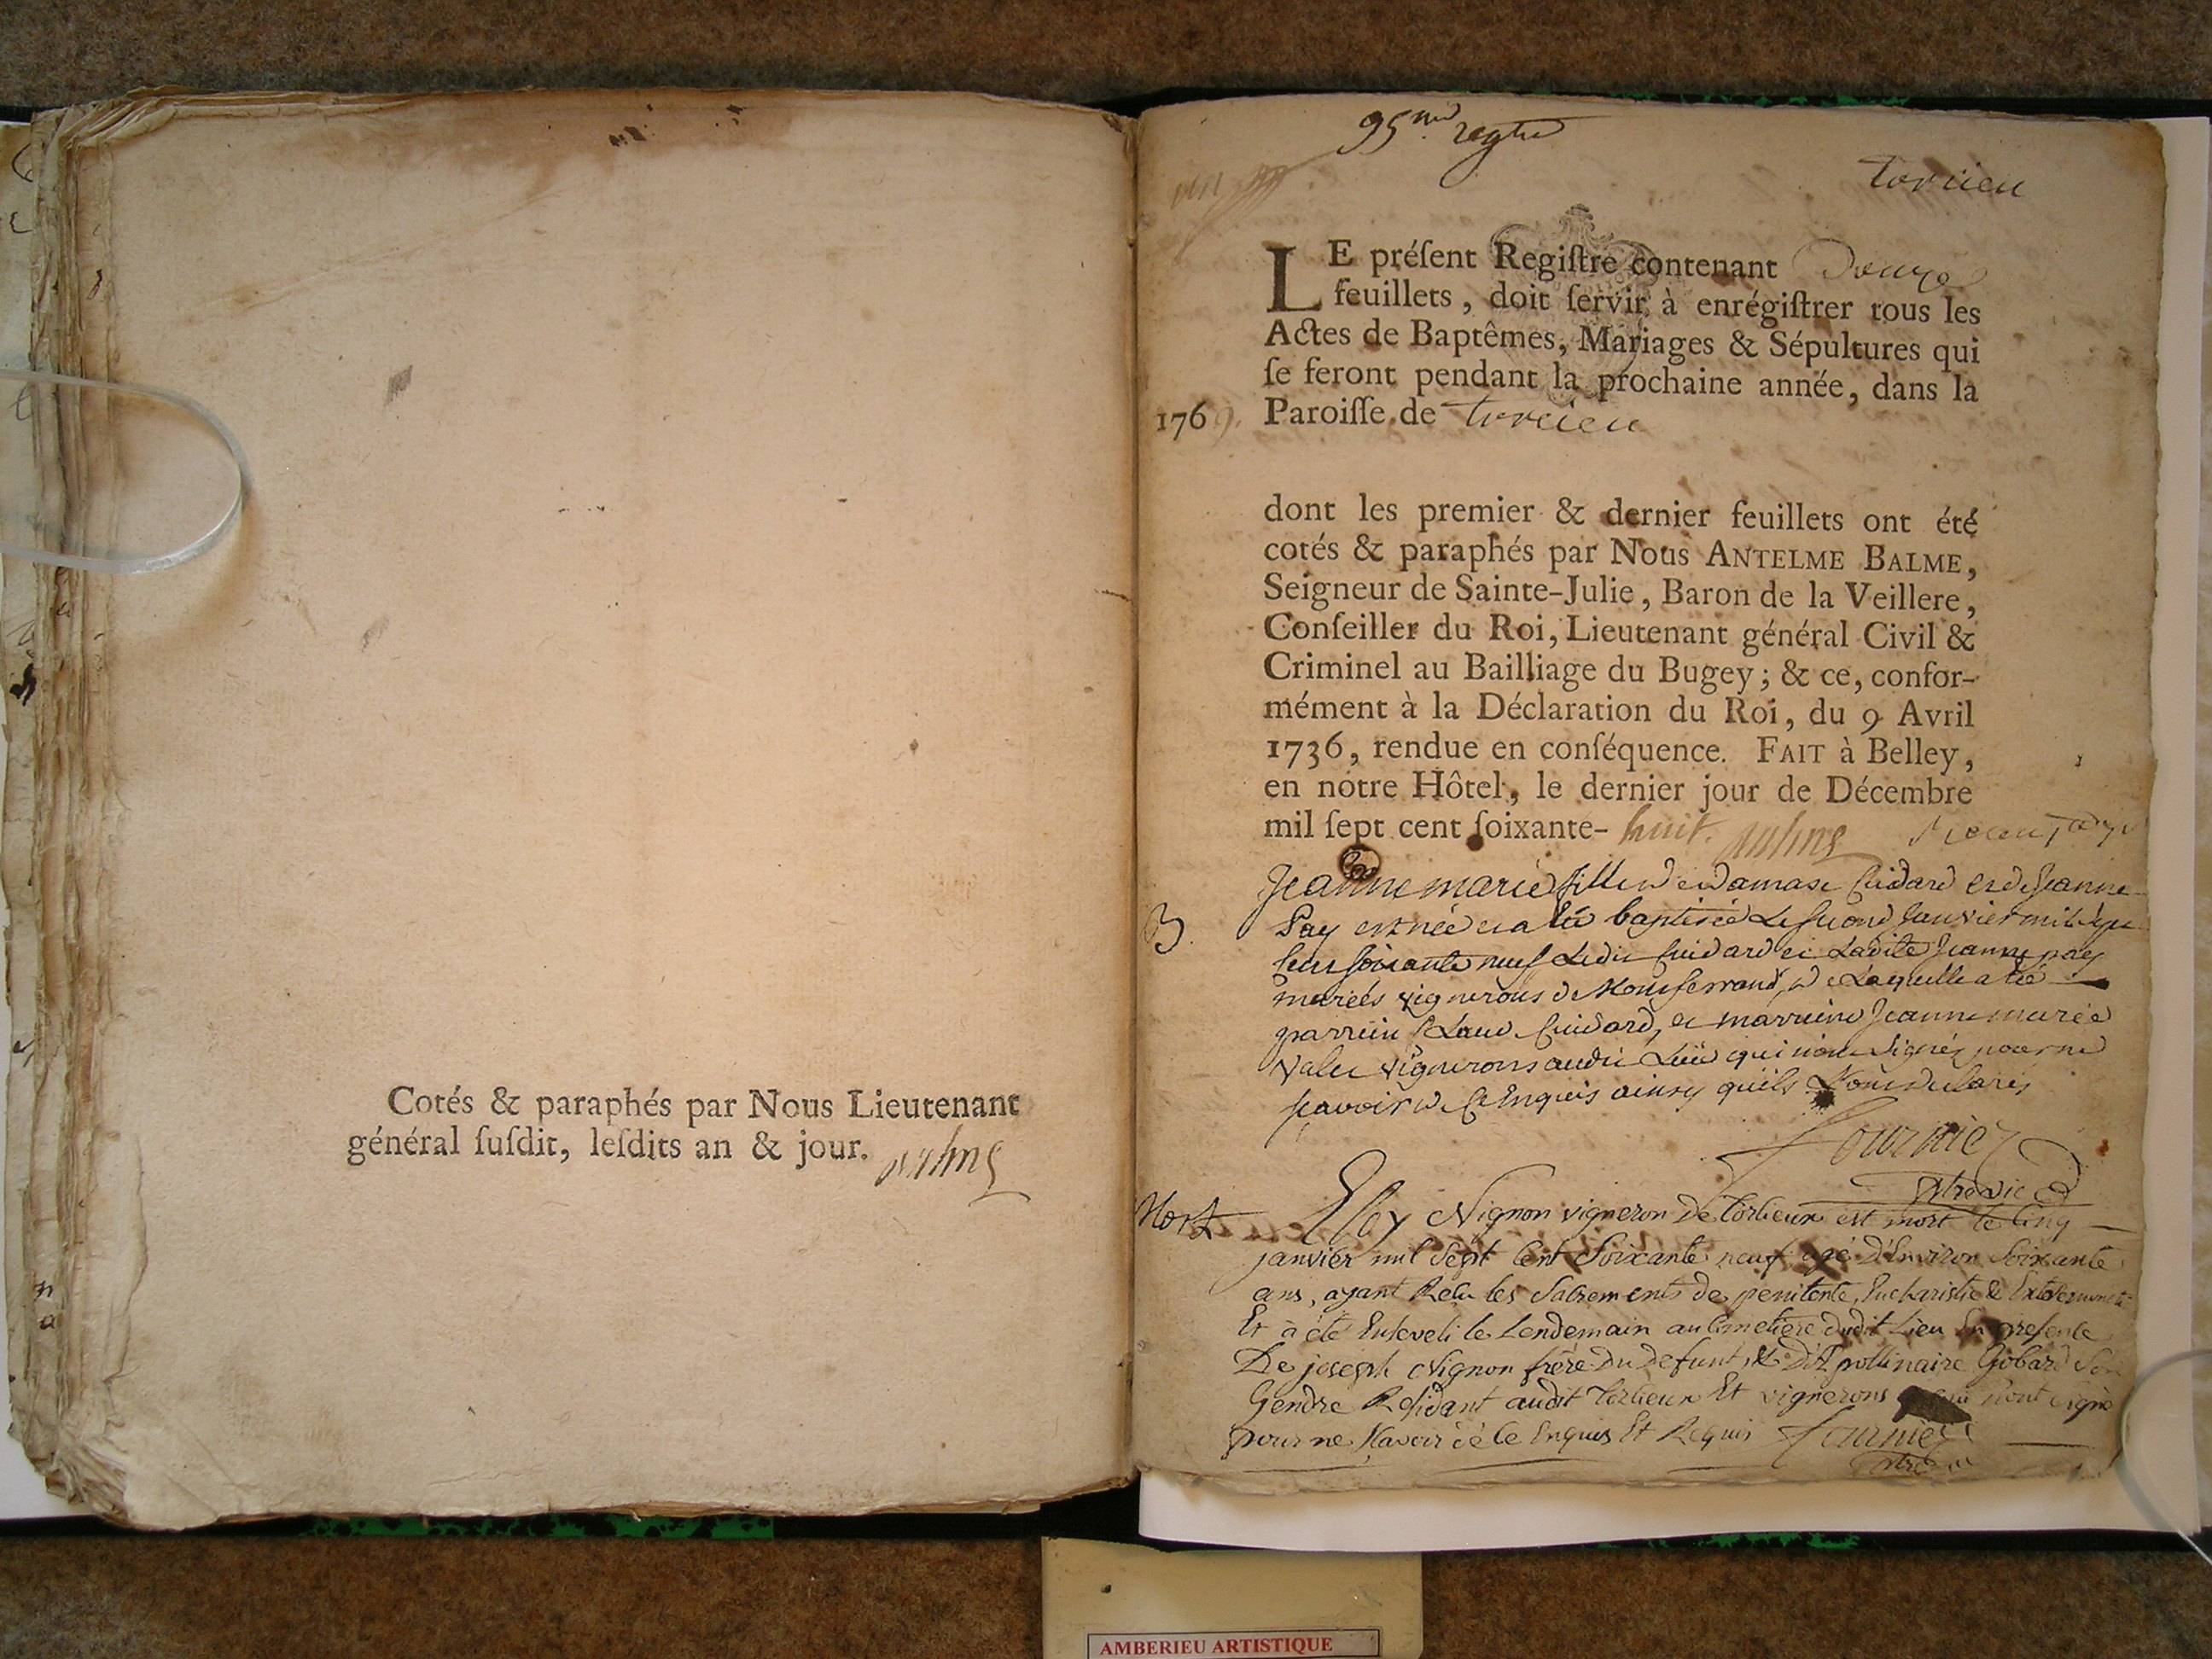 Cotés & paraphés par Nous Lieutenant
général ſuſdit, leſdits an & jour.
95me regtre
torcieu
LE préſent Regiſtre contenant Douze
feuillets, doit ſervir à enrégiſtrer tous les
Actes de Baptêmes, Mariages & Sépultures qui
ſe feront pendant la prochaine année, dans la
1769. Paroiſſe de torcieu
dont les premier & dernier feuillets ont été
cotés & paraphés par Nous ANTELME BALME,
Seigneur de Sainte-Julie, Baron de la Veillere,
Conſeiller du Roi, Lieutenant général Civil &
Criminel au Bailliage du Bugey; & ce, confor-
mément à la Déclaration du Roi, du 9 Avril
1736, rendue en conſéquence. FAIT à Belley,
en notre Hôtel, le dernier jour de Décembre
mil ſept cent ſoixante-huit.
Jeanne marie fille de Damase Guidard et de Jeanne
B. Pay est née et a été baptisée le second Janvier mil sept
cent soixante neuf Ledit Guidard et Ladite Jeanne pay
mariés vignerons de Montferrand, de Laquelle a été
parrein Claud Guidard, et marreine Jeanne marie
vignerons audit Lieu qui n'ont signés pour ne
sçavoir de ce Enquis ainsy qu'ils L'ont declarés
fournier
Mort Eloy Nignon vigneron de torcieux est mort le Cinq
janvier mil Sept Cent Soixante neuf agé D'Environ Soixante
ans, ayant Reçu les Sacrements de penitence, Eucharistie & Extremonct
Et à été Enseveli le Lendemain au Cimetière dudit Lieu En presence
De joseph Nignon frère Du Defunt, & D'Apollinaire Gobard Son
Gendre Residant audit torcieux Et vignerons qui n'ont signé
pour ne sçavoir de ce Enquis Et Requis fournier
AMBERIEU ARTISTIQUE